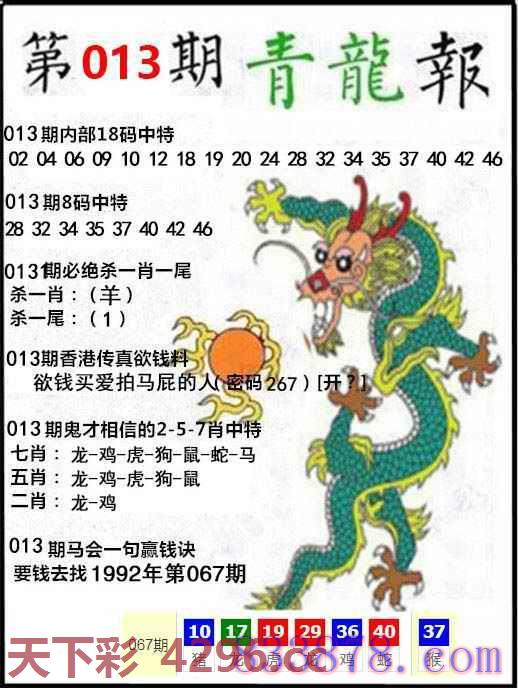 第013期青龍報
013期内部18码中特
02 04 06 09 10 12 18 19 20 24 28 32 34 35 37 40 42 46
013期8码中特
28 32 34 35 37 40 42 46
013期必绝杀一肖一尾
杀一肖：（羊）
杀一尾：（1）
013期香港传真欲钱料
欲钱买爱拍马屁的人（密码267）[开？]
013期鬼才相信的2-5-7肖中特
七肖：龙-鸡-虎-狗-鼠-蛇-马
五肖：龙-鸡-虎-狗-鼠
二肖：龙-鸡
013期马会一句赢钱诀
要钱去找1992年第067期
067期 10 17 19 29 36 40 37
猪 龙 虎 龙 鸡 蛇 猴
天下彩 4296.cc